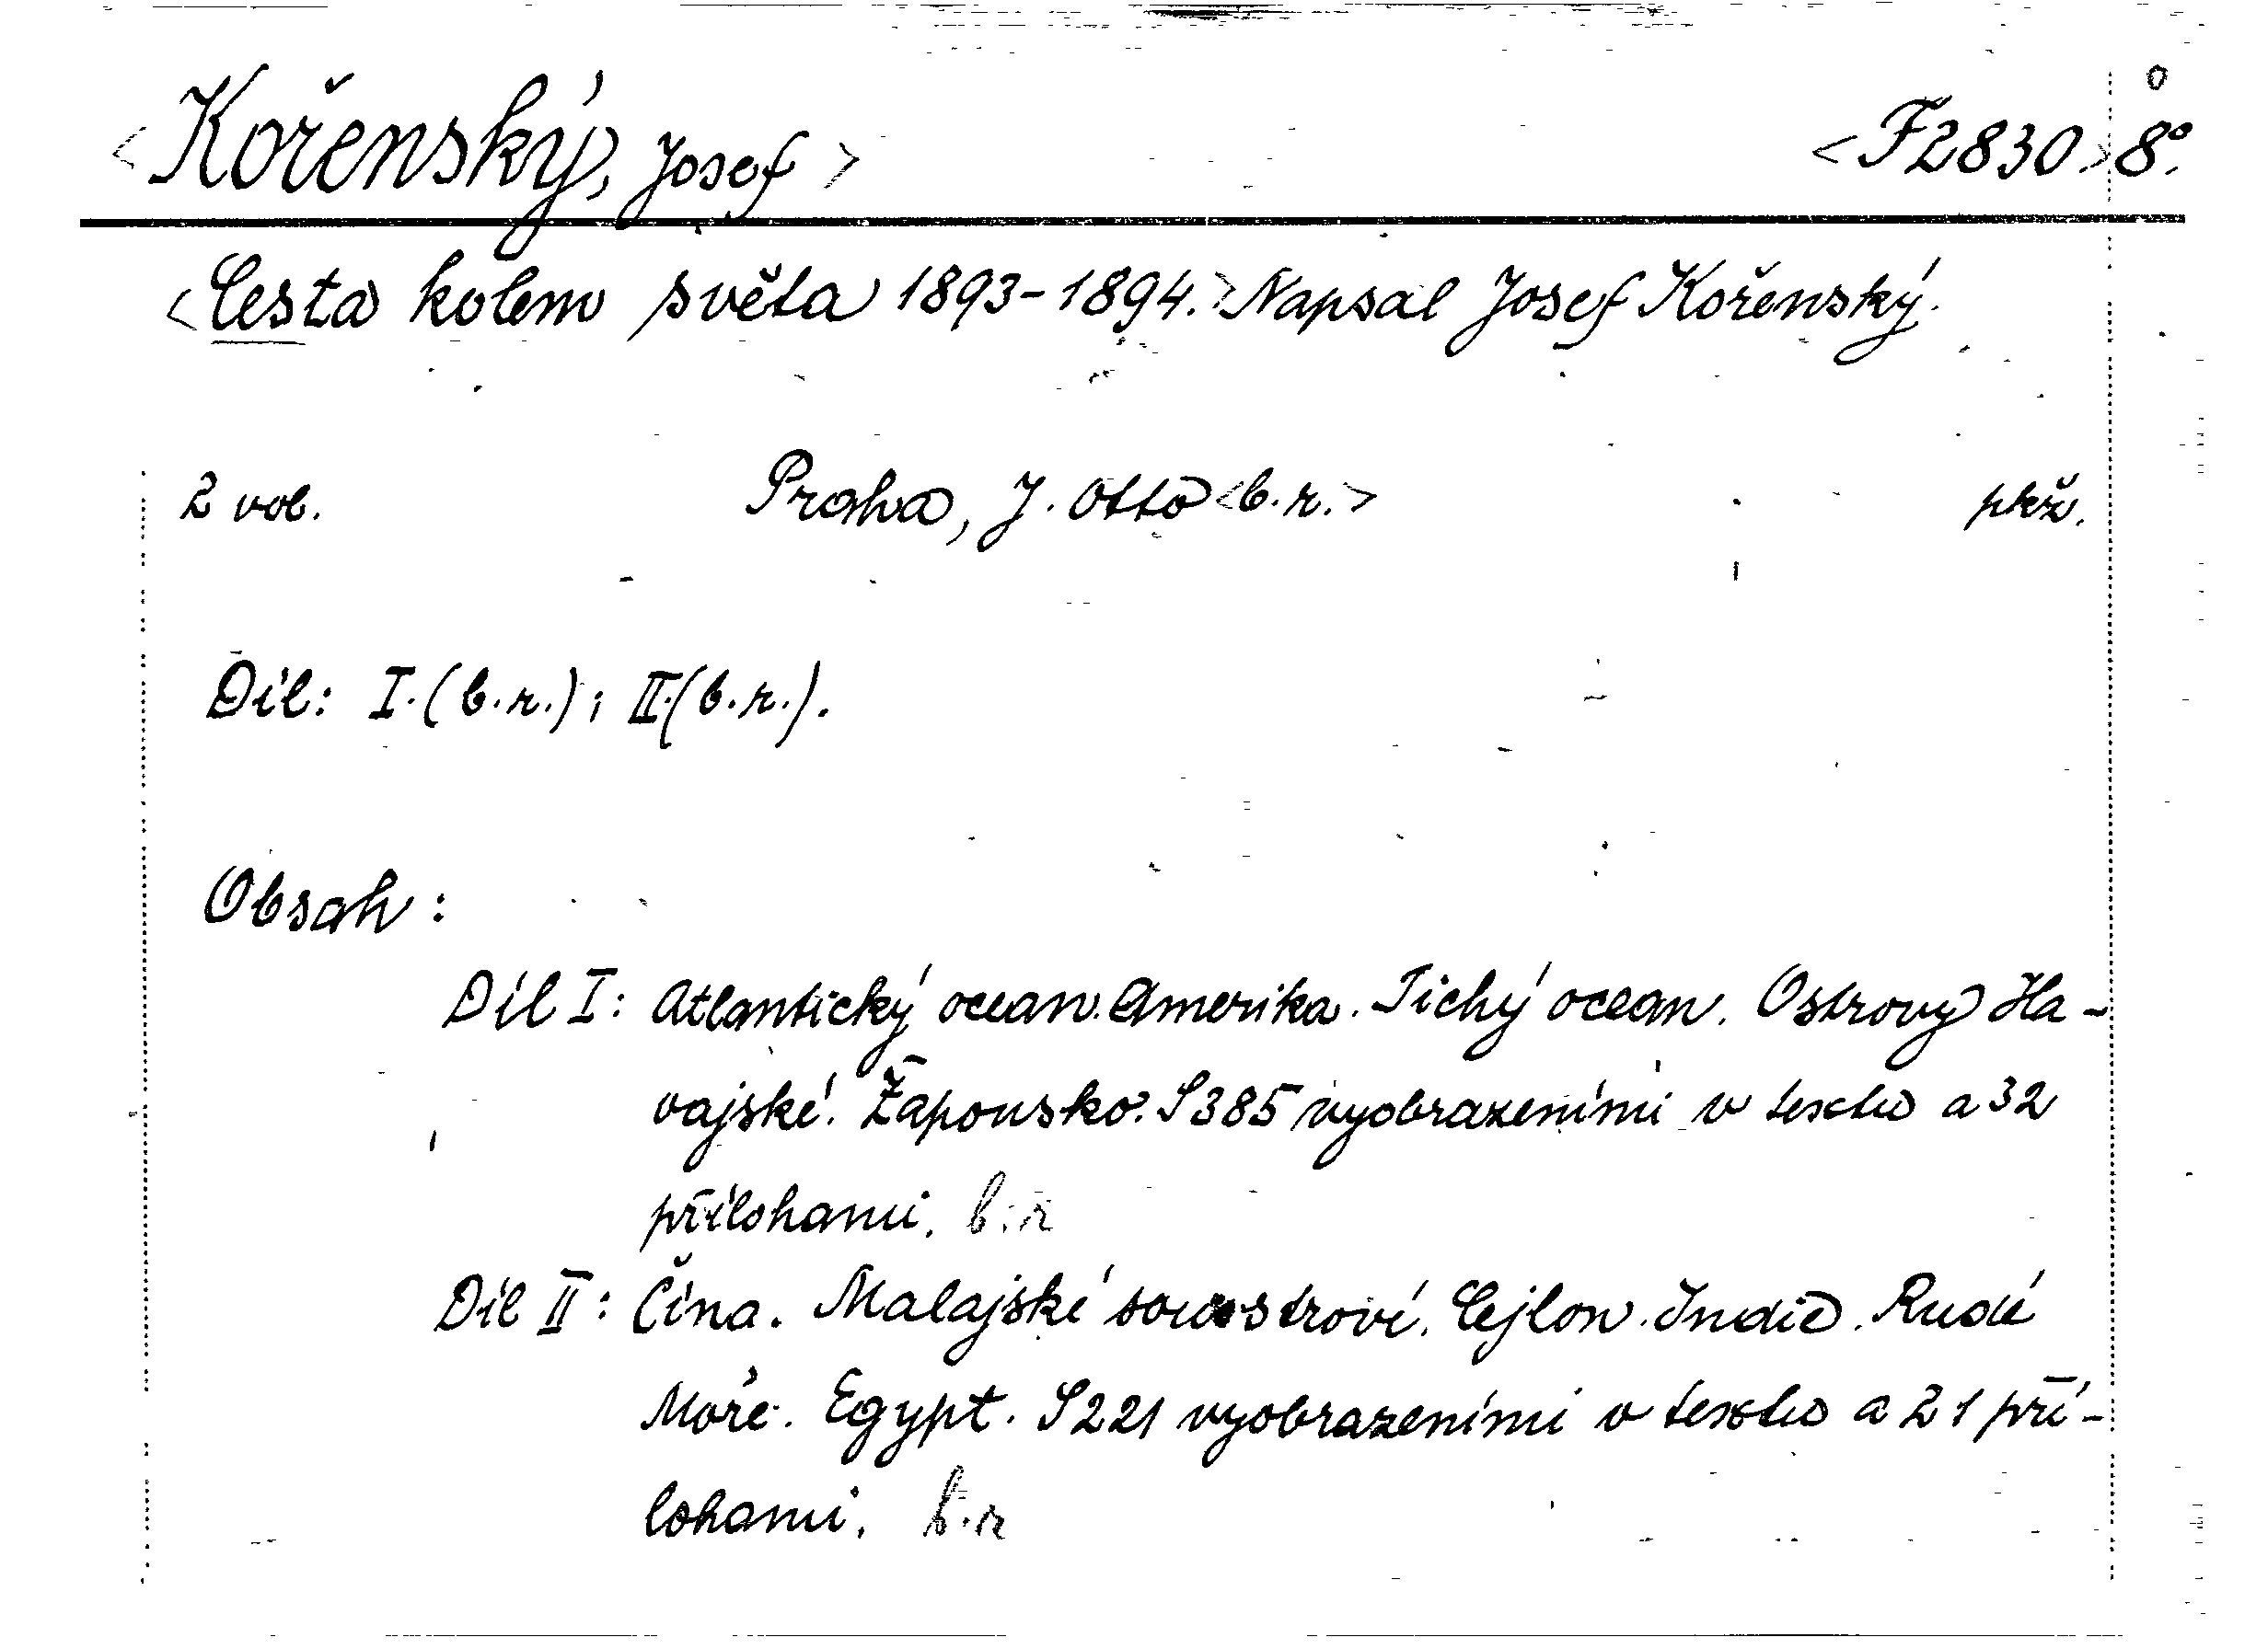 <Kořenský, Josef> <F2830> 8°.
<Cesta kolem světa 1893-1894.> Napsal Josef Kořenský.
2 vol. Praha, J. Otto <b.r.> pkž.
Díl: I. (b.r.); II. (b.r.).
Obsah:
Díl I: Atlantický ocean. Amerika. Tichý ocean. Ostrovy Ha-
vajské. Žaponsko. S 385 vyobrazeními v textu a 32
přílohami. b.r
Díl II: Čína. Malajské soustroví. Cejlon. Indie. Rudé
Moře. Egypt. S 221 vyobrazeními v textu a 21 pří-
lohami. b.r